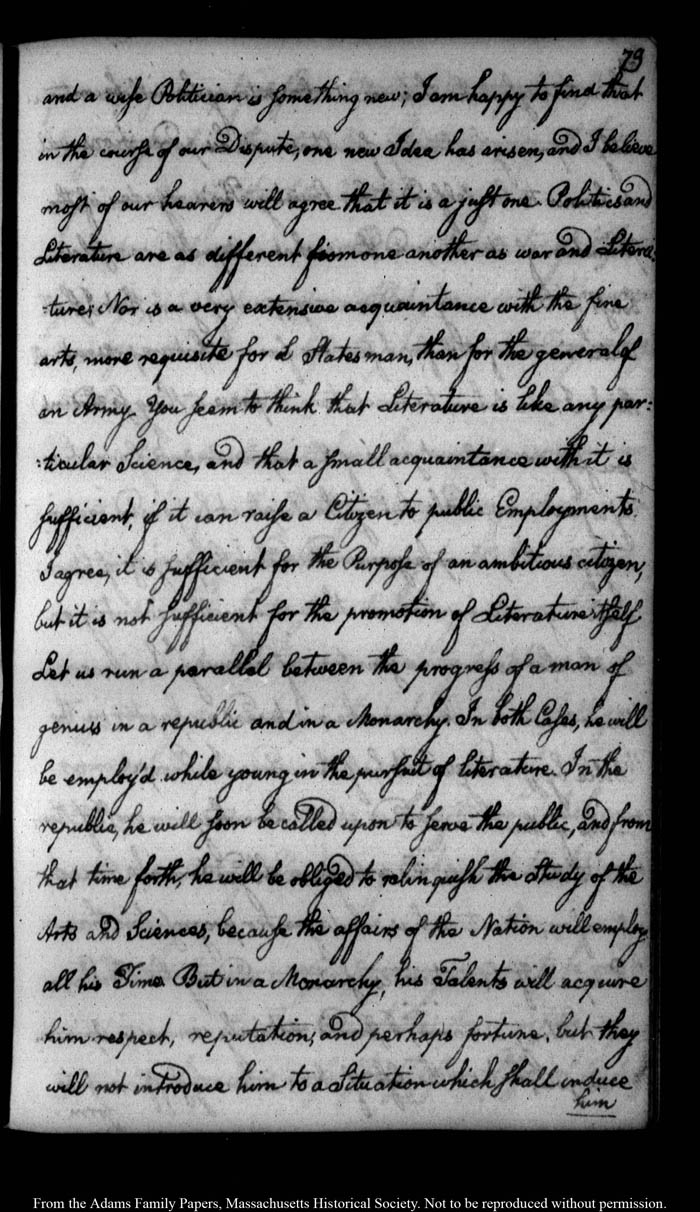 79
and a wise Politician is something new; I am happy to find that
in the course of our Dispute, one new Idea has arisen, and I believe
most of our hearers will agree that it is a just one. Politics and
Literature are as different from one another as war and Litera-
:ture; Nor is a very extensive acquaintance with the fine
arts, more requisite for a Statesman, than for the general of
an Army. You seem to think that Literature is like any par:
:ticular Science, and that a small acquaintance with it is
sufficient, if it can raise a Citizen to public Employments.
I agree, it is sufficient for the Purpose of an ambitious citizen,
but it is not sufficient for the promotion of Literature itself
Let us run a parallel between the progress of a man of
genius in a republic and in a Monarchy. In both Cases, he will
be employ'd while young in the pursuit of literature. In the
republic, he will soon be called upon to serve the public, and from
that time forth, he will be obliged to relinquish the Study of the
Arts and Sciences, because the affairs of the Nation will employ
all his Time. But in a Monarchy, his Talents will acquire
him respect, reputation, and perhaps fortune, but they
will not introduce him to a Situation which shall induce
him
From the Adams Family Papers, Massachusetts Historical Society. Not to be reproduced without permission.